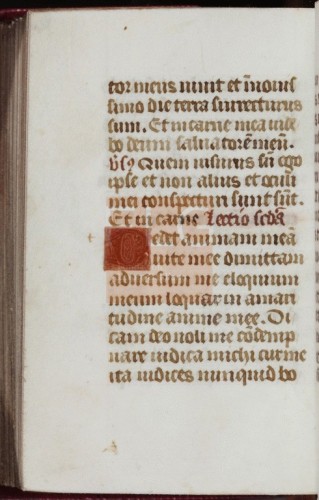 tor meus uiuit et in nouis
simo die terra surrecturus
sum. Et in carne mea uide
bo deum saluatorē meū.
v̄s Quem uisurus sū ego
ipse et non alius et oculi
mei conspecturi sunt sūt.
Et in carne Lectio scdā
Tedet animam meā
uite mee dimittam
aduersum me eloquium
meum loquar in amari
tudine anime mee. Di
cam deo noli me cōdemp
nare indica michi cur me
ita iudices nunquid bo